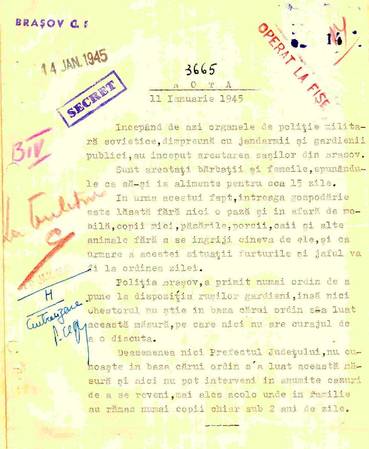 BRAȘOV
14 JAN. 1945
OPERAT LA FIȘE
3665
N O T A
SECRET
11 Ianuarie 1945
Incepând de azi organele de poliție milita
ră sovietice, dimpreună cu jandarmii și gardienii
publici, au început arestarea sașilor din Brașov.
Sunt arestați bărbații și femeile, spunându
le ca să-și ia alimente pentru cca 15 zile.
In urma acestui fapt, intreaga gospodărie
este lăsată fără nici o pază și în afară de mo-
bilă, copii mici, păsările, porcii, caii și alte
animale fără a se ingriji cineva de ele, și ca
urmare a acestei situații furturile și jaful va
fi la ordinea zilei.
Poliția Brașov, a primit numai ordin de a
pune la dispoziția rușilor gardieni, însă nici
Chestorul nu știe în baza cărui ordin s'a luat
această măsură, pe care nici nu are curajul de
a o discuta.
Deasemenea nici Prefectul Județului, nu cu
noaște in baza cărui ordin s'a luat această mă
sură și nici nu pot interveni in anumite cazuri
de a se reveni, mai ales acolo unde in familie
au rămas numai copii chiar sub 2 ani de zile.